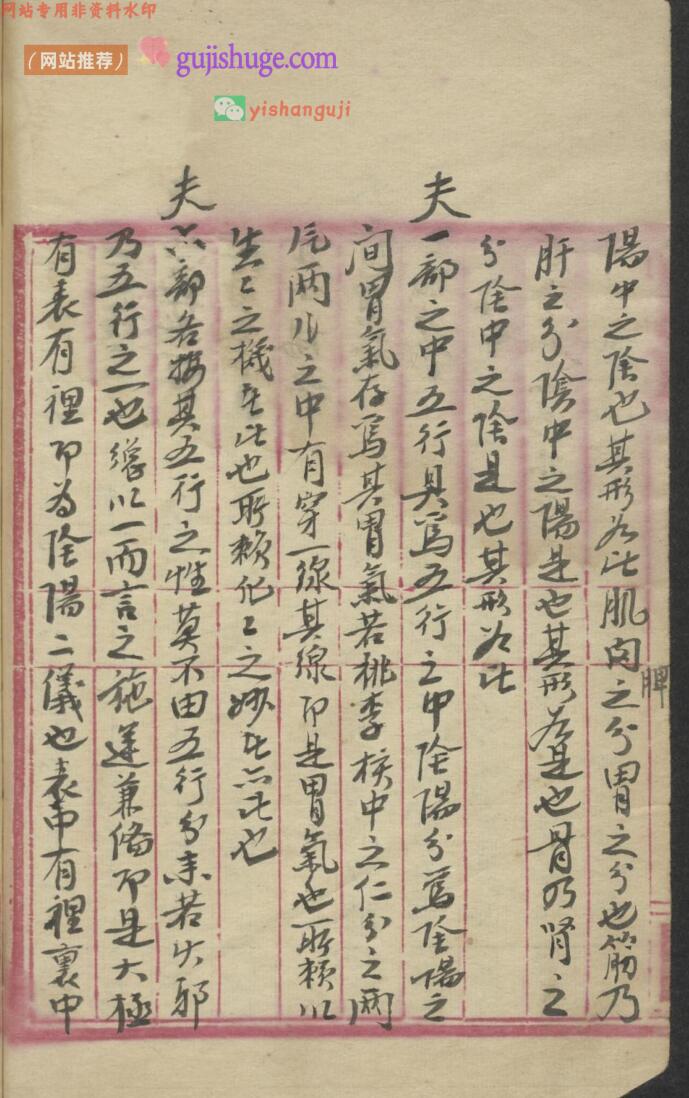 网站专用非资料水印
（网站推荐） gujishuge.com
yishanguji
陽中之陰也其形為此肌肉之分胃之分也筋乃
脾
肝之分陰中之陽是也其形為是也骨乃腎之
分陰中之陰是也其形為此
夫一部之中五行具焉五行之中陰陽分焉陰陽之
間胃氣存焉其胃氣若桃李核中之仁分之兩
片兩片之中有穿一線其線即是胃氣也所賴以
生〻之機在此也所賴化〻之妙在此也
夫六部各按其五行之性莫不由五行分來若火邪
乃五行之一也總以一而言之施運兼備即是太極
有表有裡即為陰陽二儀也表中有裡裏中